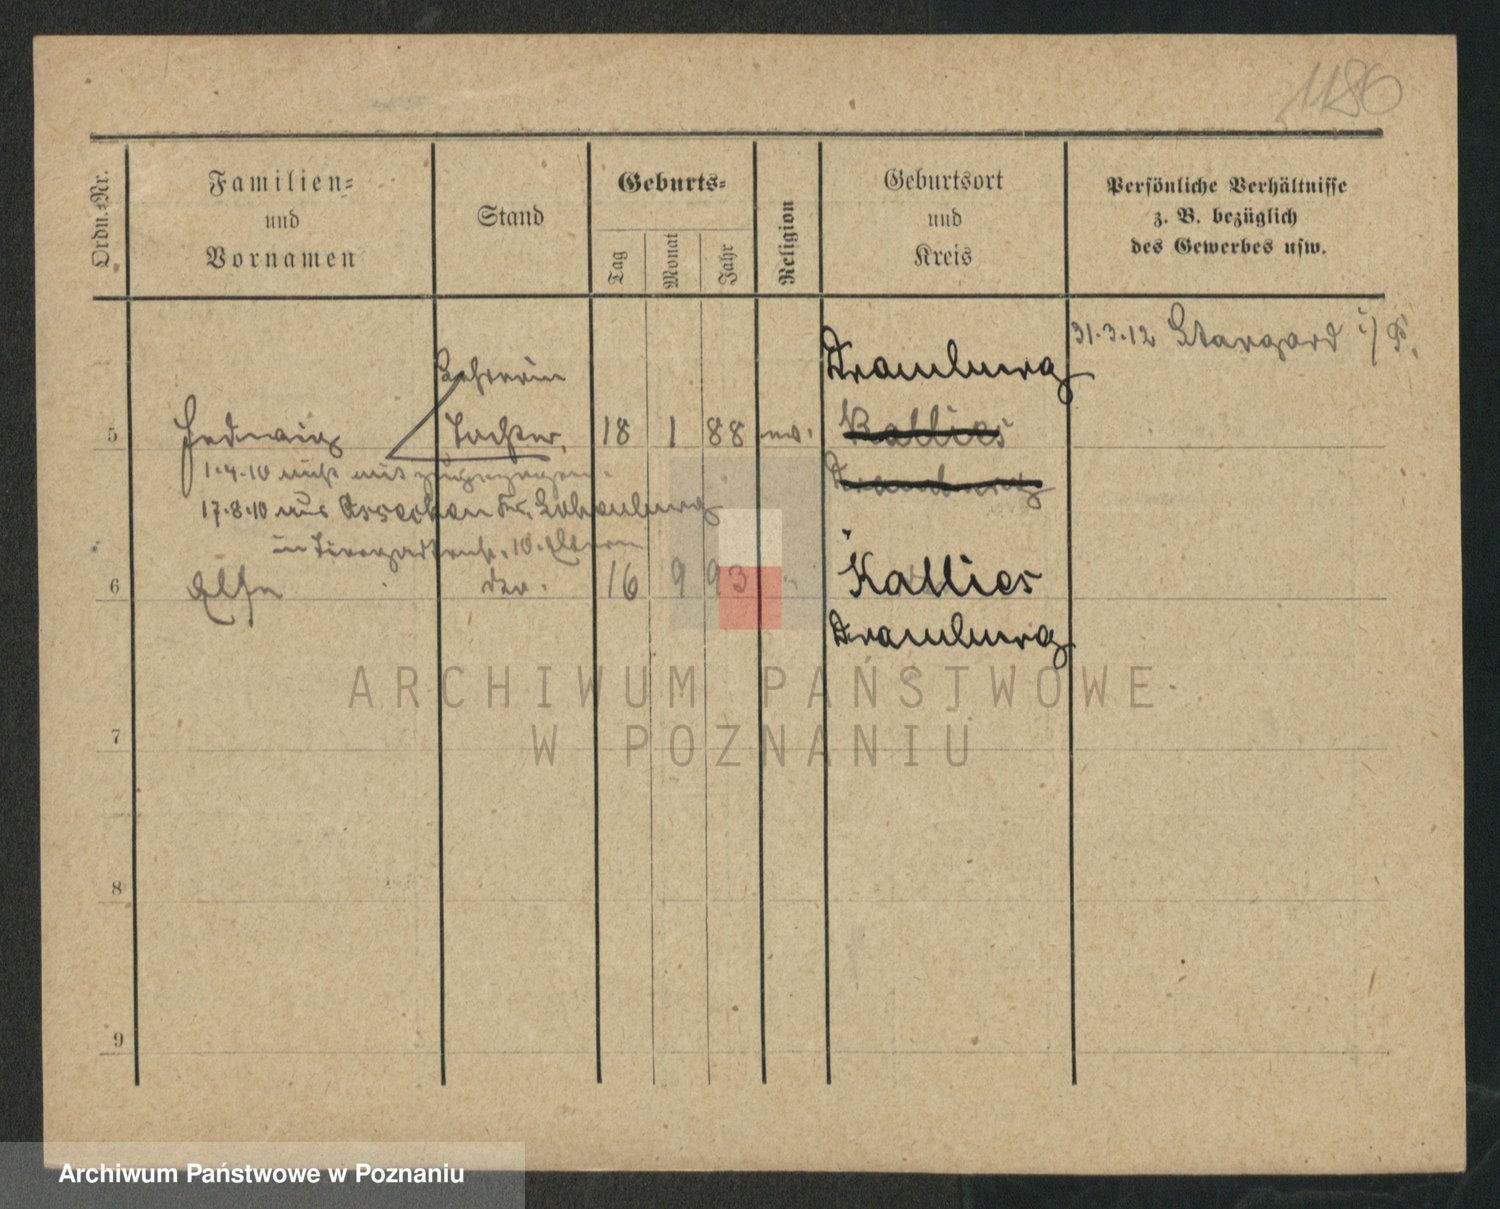 1186
Ordn.-Nr.
Familien-
und
Vornamen
Stand
Geburts-
Tag
Monat
Jahr
Religion
Geburtsort
und
Kreis
Persönliche Verhältnisse
z. B. bezüglich
des Gewerbes usw.
31.3.12 Stargard i/P.
Lehrerin
Dramburg
5 Hedwig Tochter 18 1 88 ev. Kallies
1.4.10 nicht mit zugezogen.
Dramburg
17.8.10 aus Kr.
in 10. Eltern
6 Else do. 16 9 93 " Kallies
Dramburg
7
8
9
ARCHIWUM PAŃSTWOWE
W POZNANIU
Archiwum Państwowe w Poznaniu